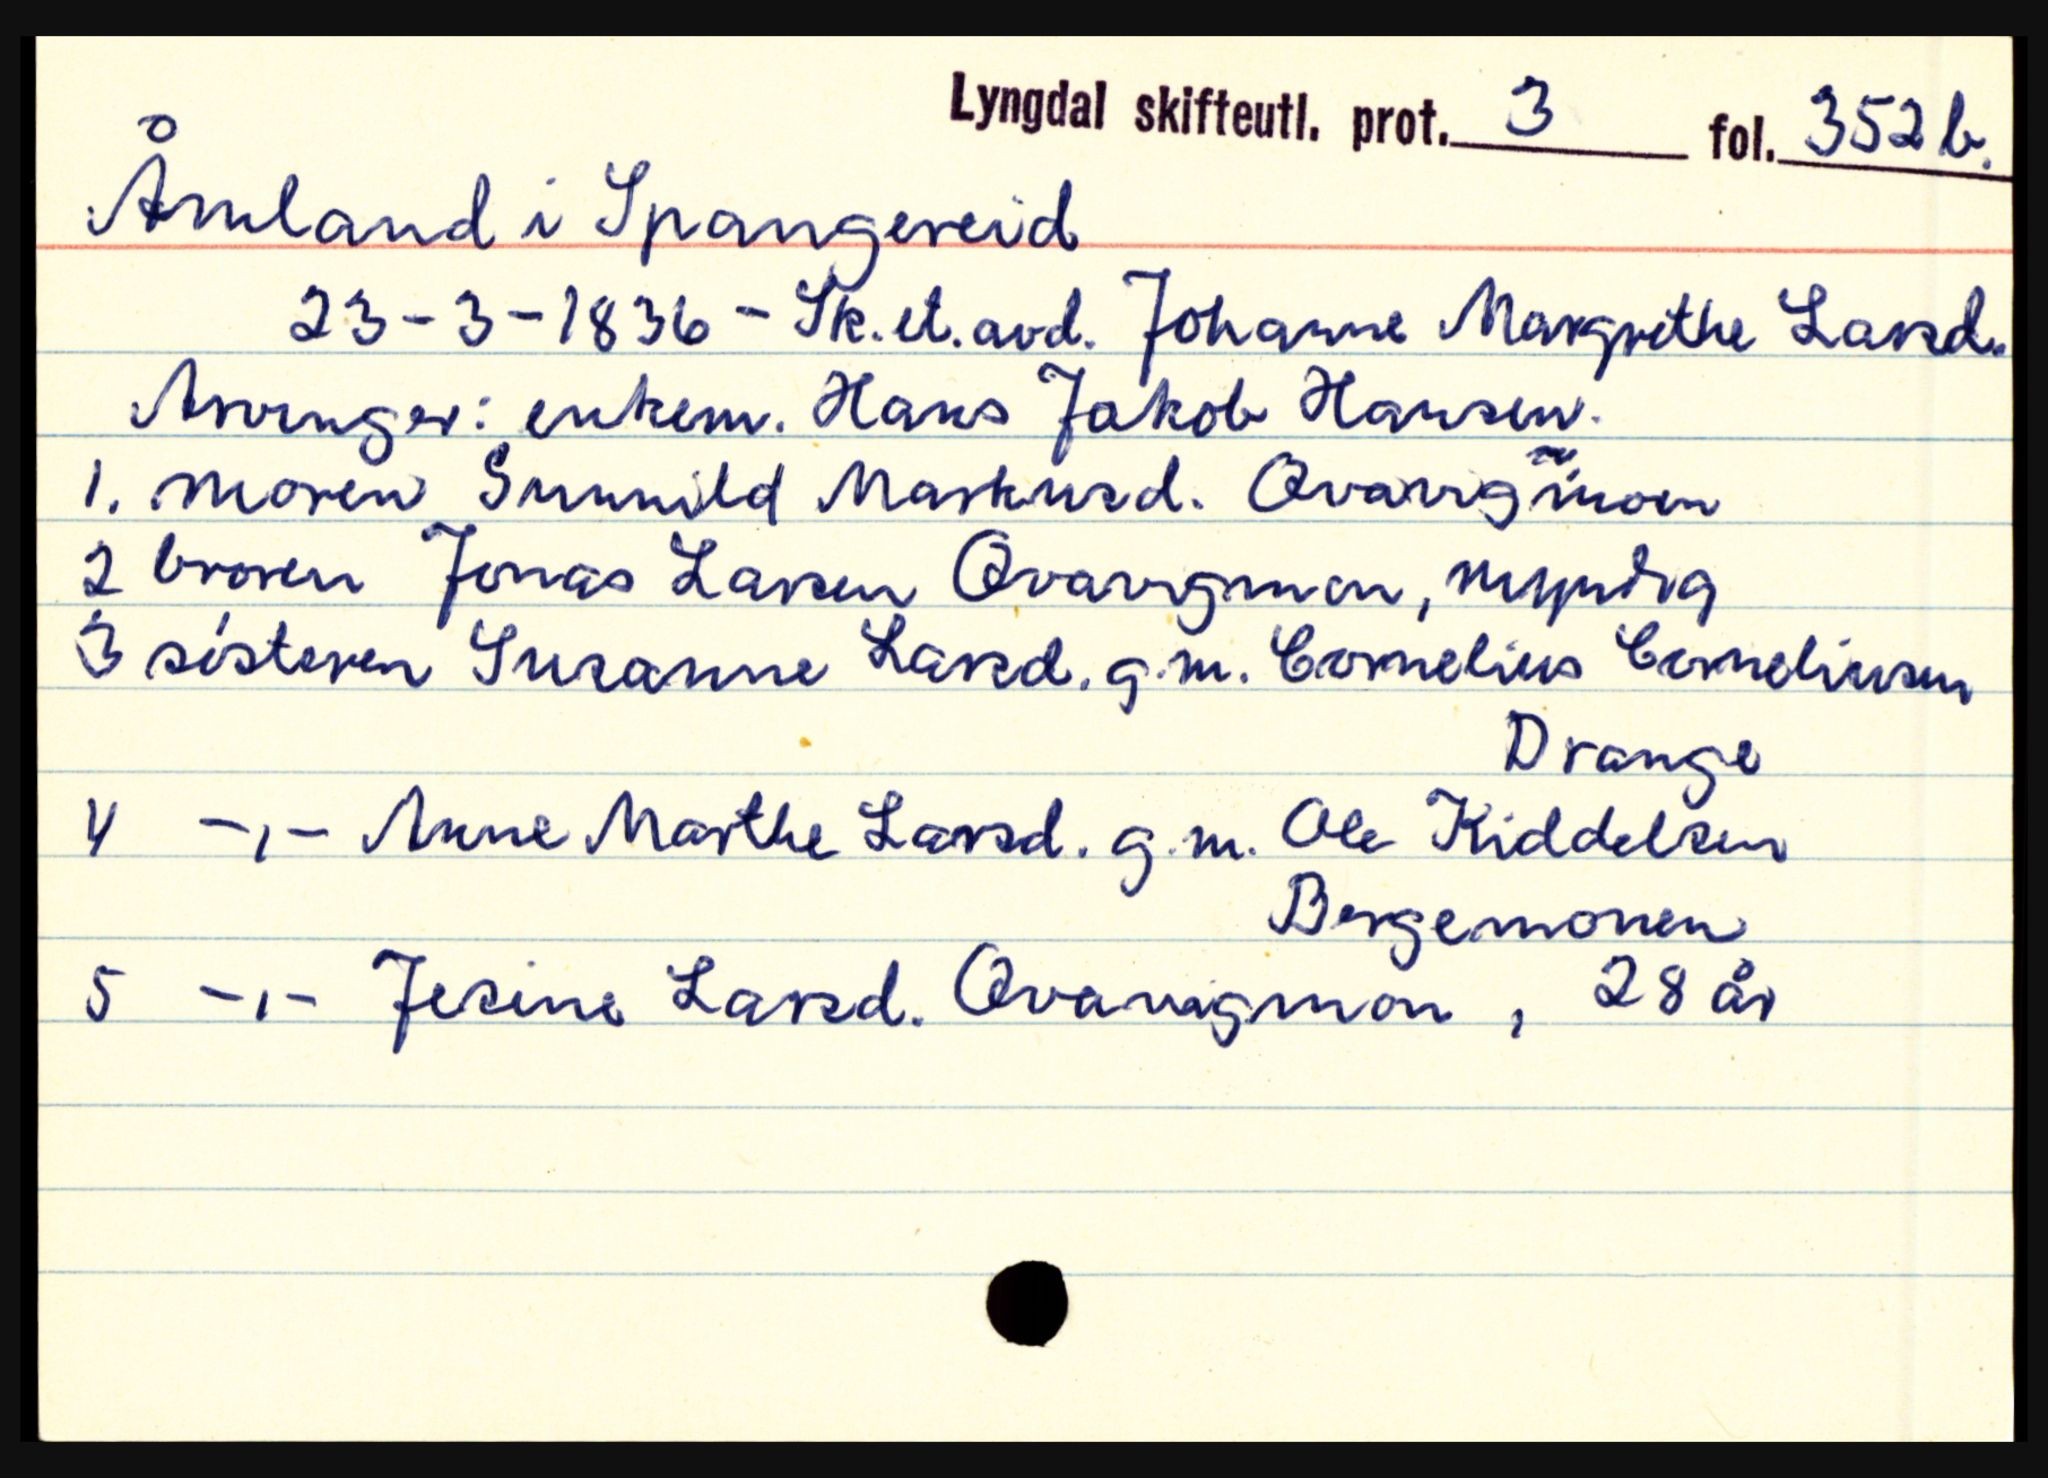 Lyngdal skifteutl. prot. 3 fol. 352 b.
Åmland i Spangereid
23-3-1836 - Sk. et. avd. Johanne Margrethe Larsd.
Arvinger: enkem. Hans Jakob Hansen.
1. moren Gunnild Markusd. Qvavigmoen
2 broren Jonas Larsen Qvavigmon, myndig
3 sisteren Susanne Larsd. g.m. Cornelius Corneliusen
Drange
4 -,- Anne Marthe Larsd. g.m. Ole Kiddelsen
Bergemonen
5 -,- Jesine Larsd. Qvavigmon, 28 år